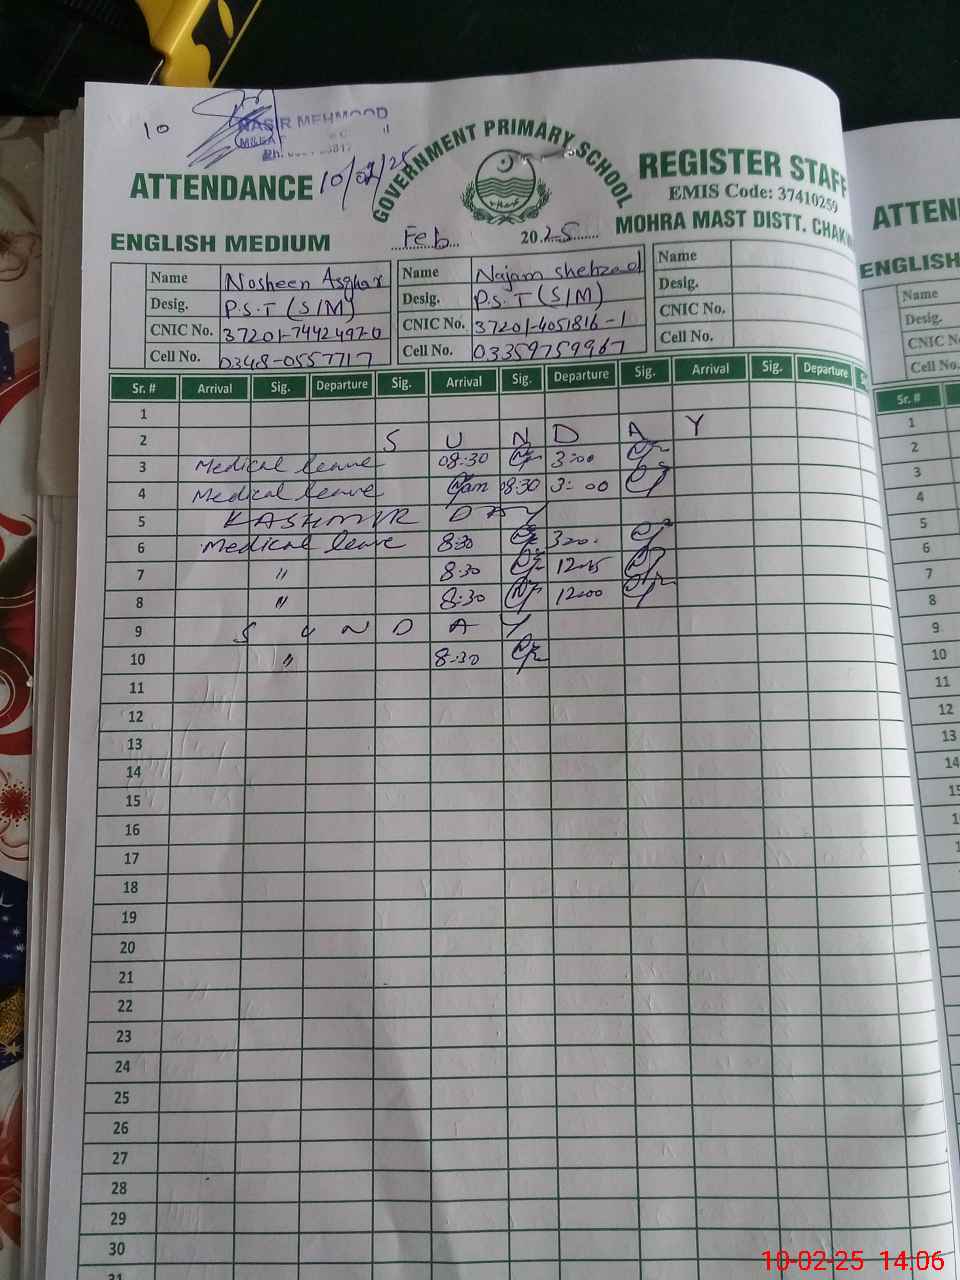 10
NASIR MEHMOOD
10/02/25
GOVERNMENT PRIMARY SCHOOL
ATTENDANCE
REGISTER STAFF
EMIS Code: 37410259
MOHRA MAST DISTT. CHAK
ENGLISH MEDIUM
Feb 2025
Name Nosheen Asghar Name Najam Shehzad Name
Desig. P.S.T (S/M) Desig. P.S.T (S/M) Desig.
CNIC No. 37201-7442497-0 CNIC No. 37201-4051816-1 CNIC No.
Cell No. 0348-0557717 Cell No. 03359759967 Cell No.
Sr. # Arrival Sig. Departure Sig. Arrival Sig. Departure Sig. Arrival Sig. Departure
1
2 S U N D A Y
3 Medical leave 08:30 3:00
4 Medical leave 08:30 3:00
5 KASHMIR DAY
6 Medical leave 8:30
7 " 8:30
8 " 8:30 12:00
9 S U N D A Y
10 " 8:30
11
12
13
14
15
16
17
18
19
20
21
22
23
24
25
26
27
28
29
30
31
ATTEN
ENGLISH
Name
Desig.
CNIC N
Cell No.
Sr. #
1
2
3
4
5
6
7
8
9
10
11
12
13
14
10-02-25 14:06